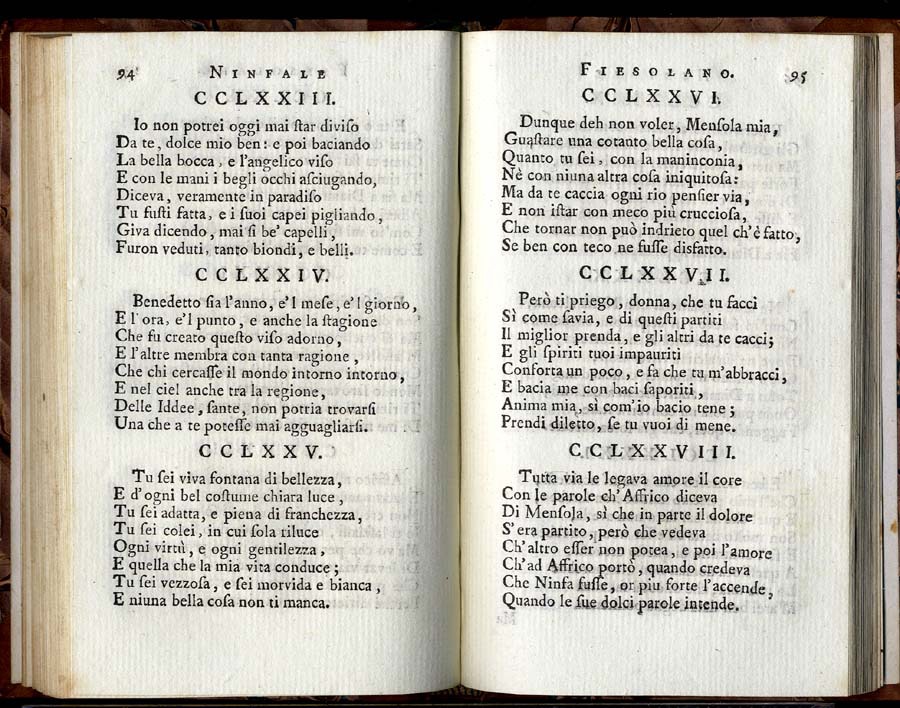 94 NINFALE
CCLXXIII.
Io non potrei oggi mai ſtar diviſo
Da te, dolce mio ben: e poi baciando
La bella bocca, e l'angelico viſo
E con le mani i begli occhi aſciugando,
Diceva, veramente in paradiſo
Tu fuſti fatta, e i ſuoi capei pigliando,
Giva dicendo, mai ſi be' capelli,
Furon veduti, tanto biondi, e belli.
CCLXXIV.
Benedetto ſia l'anno, e'l meſe, e'l giorno,
E l'ora, e'l punto, e anche la ſtagione
Che fu creato queſto viſo adorno,
E l'altre membra con tanta ragione,
Che chi cercaſſe il mondo intorno intorno,
E nel ciel anche tra la regione,
Delle Iddee, ſante, non potria trovarſi
Una che a te poteſſe mai agguagliarſi.
CCLXXV.
Tu ſei viva fontana di bellezza,
E d'ogni bel coſtume chiara luce,
Tu ſei adatta, e piena di franchezza,
Tu ſei colei, in cui ſola riluce
Ogni virtù, e ogni gentilezza,
E quella che la mia vita conduce;
Tu ſei vezzoſa, e ſei morvida e bianca,
E niuna bella coſa non ti manca.
FIESOLANO. 95
CCLXXVI.
Dunque deh non voler, Menſola mia,
Guaſtare una cotanto bella coſa,
Quanto tu ſei, con la maninconia,
Nè con niuna altra coſa iniquitoſa:
Ma da te caccia ogni rio penſier via,
E non iſtar con meco più cruccioſa,
Che tornar non può indrieto quel ch'è fatto,
Se ben con teco ne fuſſe disfatto.
CCLXXVII.
Però ti priego, donna, che tu facci
Sì come ſavia, e di queſti partiti
Il miglior prenda, e gli altri da te cacci;
E gli ſpiriti tuoi impauriti
Conforta un poco, e fa che tu m'abbracci,
E bacia me con baci ſaporiti,
Anima mia, sì com'io bacio tene;
Prendi diletto, ſe tu vuoi di mene.
CCLXXVIII.
Tutta via le legava amore il core
Con le parole ch'Affrico diceva
Di Menſola, sì che in parte il dolore
S'era partito, però che vedeva
Ch'altro eſſer non potea, e poi l'amore
Ch'ad Affrico portò, quando credeva
Che Ninfa fuſſe, or più forte l'accende,
Quando le ſue dolci parole intende.